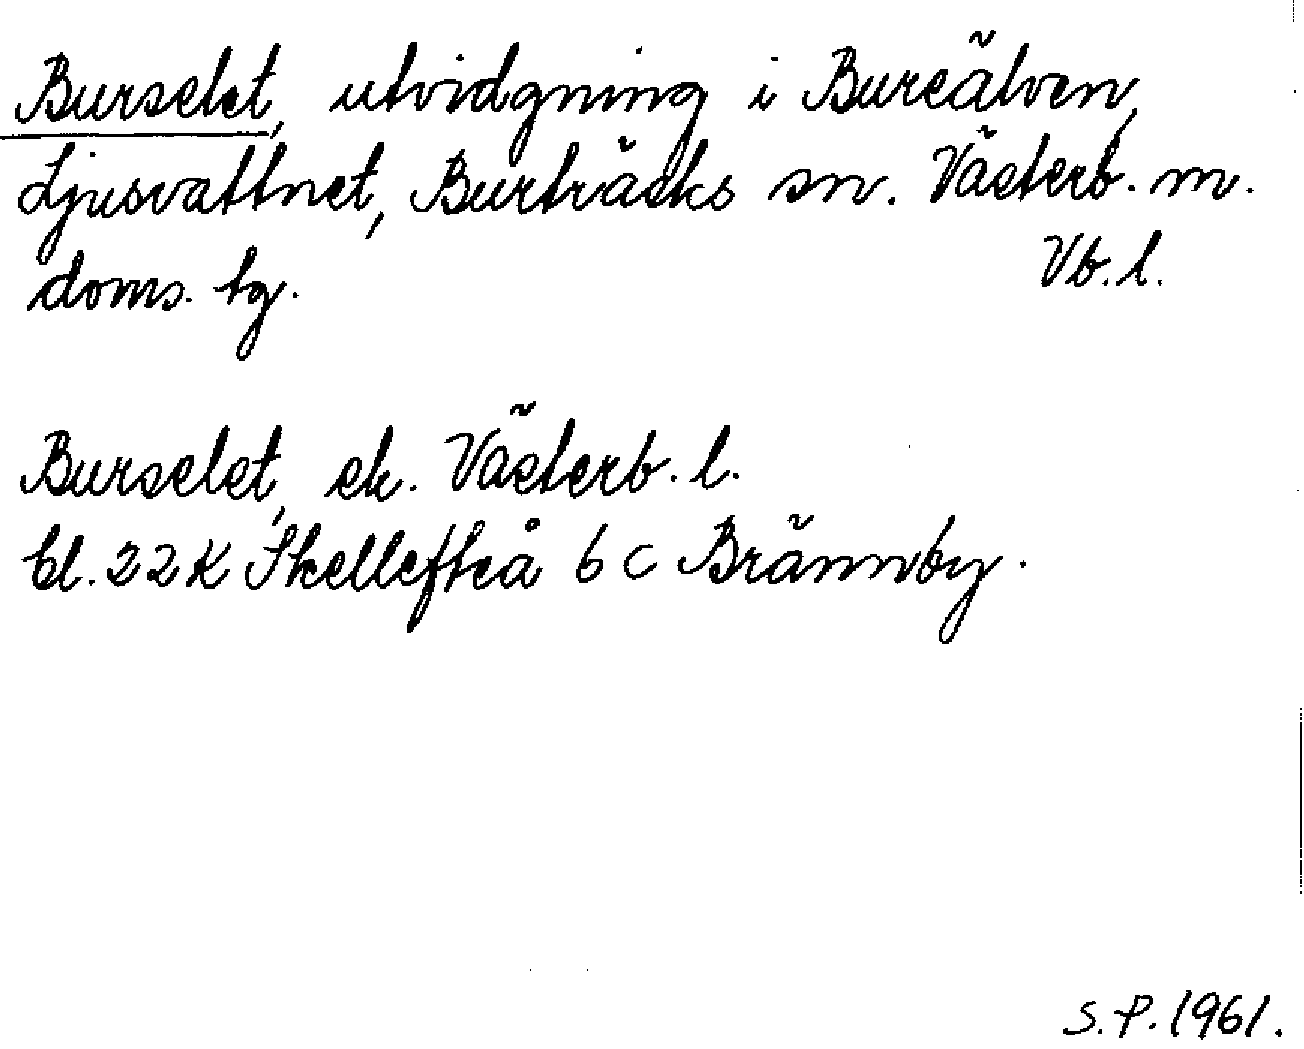 Burselet, utvidgning i Bureälven,
Ljusvattnet, Burträsks sn. Västerb. m.
doms. tg. Vb. l.
Burselet, ek. Västerb. l.
bl. 22 K Skellefteå 6 c Brännby.
S. P. 1961.